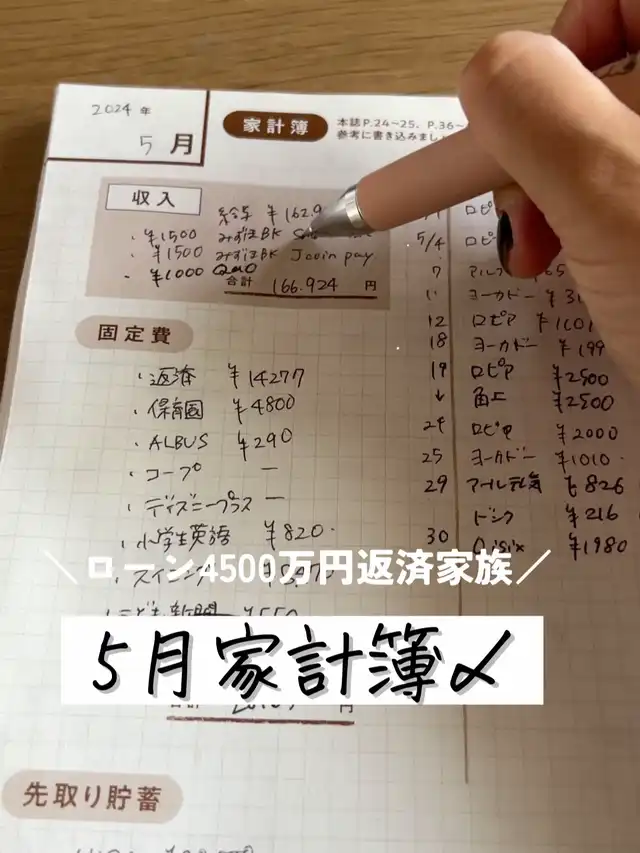 2024 年
5 月
家計簿
本誌P.24~25、P.36~
参考に書き込みまし
収入
給与 ¥162.9
・¥1500 みずほBK
・¥1500 みずほBK Jcoin pay
・¥1000 QUO
合計 166.924 円
固定費
・返済 ¥14277
・保育園 ¥4800
・ALBUS ¥290
・コープ −
・ディズニープラス −
・小学生英語 ¥820
・スイミング
・こども新聞 ¥550
円
先取り貯蓄
ロピ
5/4 ロピ
7
11 ヨーカドー ¥
12 ロピア ¥1101
18 ヨーカドー ¥199
19 ロピア ¥2500
↓ 角上 ¥2500
24 ロピア ¥2000
25 ヨーカドー ¥1010
29 アール元気 ¥826
ドンク ¥216
30 Oisix ¥1980
＼ローン4500万円返済家族／
5月家計簿〆